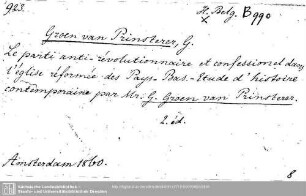 923.
H. Belg. B 990
x
Groen van Prinsterer, G.
Le parti anti-révolutionnaire et confessionel dans
l'église réformée des Pays-Bas. Etude d'histoire
contemporaine par Mr. G. Groen van Prinsterer.
2. éd.
Amsterdam 1860.
8